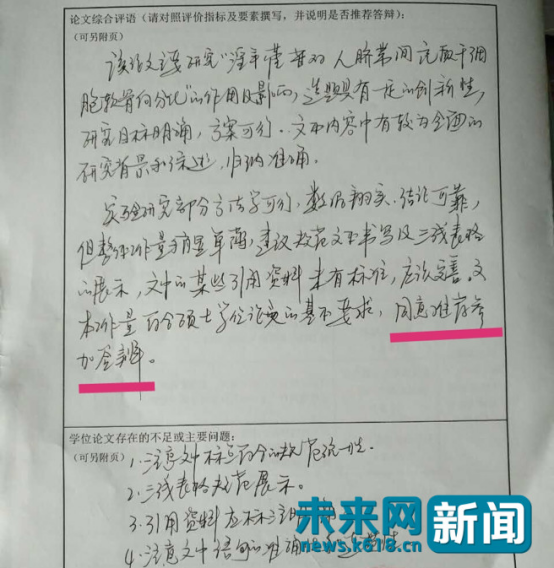 论文综合评语（请对照评价指标及要素撰写，并说明是否推荐答辩）：
（可另附页）
该论文选题研究“淫羊藿苷对人脐带间充质干细
胞软骨向分化”的作用及影响，选题具有一定的创新性，
研究目标明确，方案可行。文本内容中有较为全面的
研究背景和综述，归纳准确。
实验研究部分方法学可行，数据翔实，结论可靠，
但整体工作量稍显单薄，建议规范文本书写及三线表格
的展示，文中的某些引用资料未有标注，应该完善。文
本工作量符合硕士学位论文的基本要求，同意推荐参
加答辩。
学位论文存在的不足或主要问题：
（可另附页）
1.注意文中标点符合的规范统一性。
2.三线表格规范展示。
3.引用资料应标注明
4.注意文中语句的准确
未来网 新闻
news.k618.cn